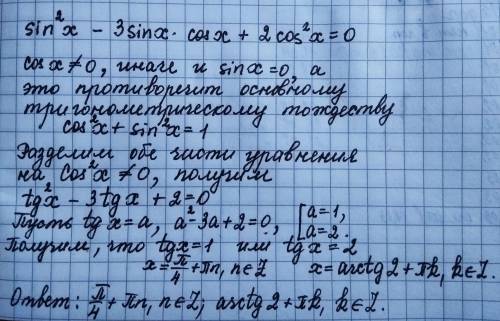 sin²x - 3sinx · cosx + 2cos²x = 0
cosx ≠ 0, иначе и sinx = 0, а
это противоречит основному
тригонометрическому тождеству
cos²x + sin²x = 1
Разделим обе части уравнения
на cos²x ≠ 0, получим
tg²x - 3tgx + 2 = 0
Пусть tgx = a, a² - 3a + 2 = 0, [a = 1, a = 2.
Получим, что tgx = 1 или tgx = 2
x = π/4 + πn, n ∈ Z x = arctg2 + πk, k ∈ Z.
Ответ: π/4 + πn, n ∈ Z; arctg2 + πk, k ∈ Z.